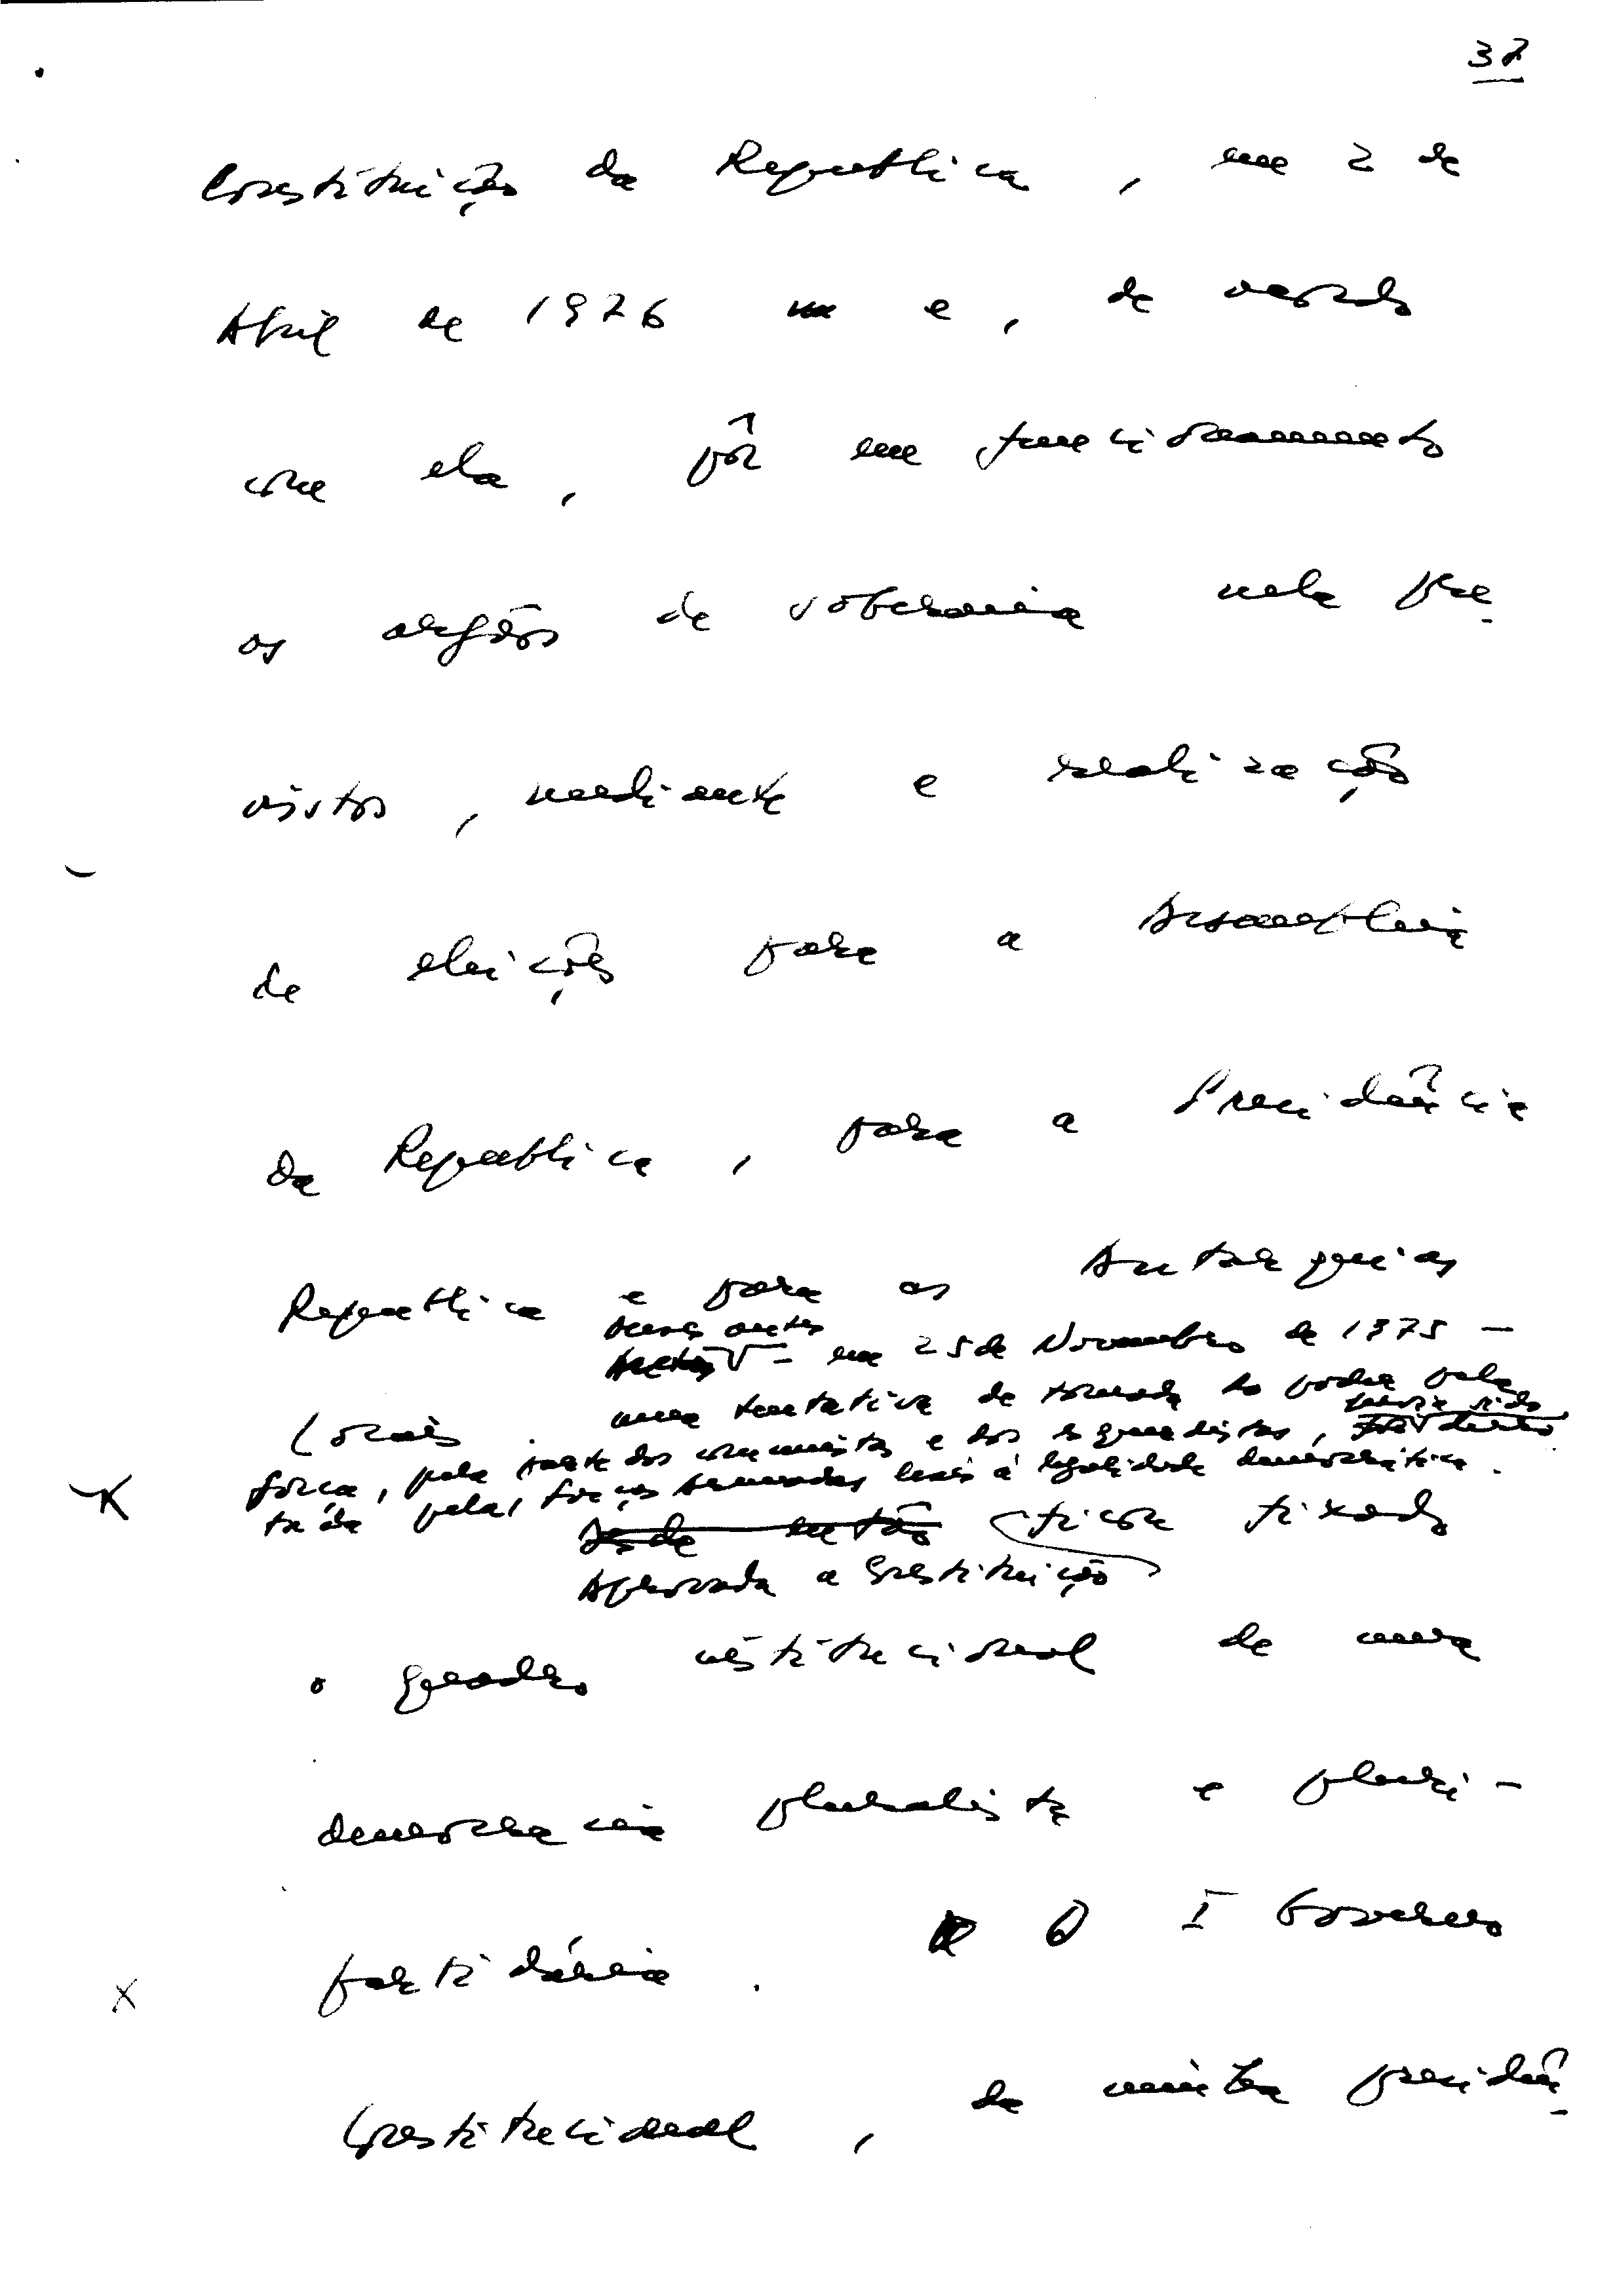 37
Constituição da Republica, em 2 de
Abril de 1976 e, de acordo
com ela, pôr em funcionamento
os orgãos de soberania nela pre-
vistos, mediante a realização
de eleições para a Assembleia
da Republica, para a Presidência
Republica e para as Autarquias
meses antes
- em 25 de Novembro de 1975 -
Locais. uma tentativa de tomada do poder pela
força, pela parte dos comunistas e dos esquerdistas, havia sido
tada pelas forças Armadas leais à legalidade democrática.
Desde então ficou fixado
Aprovada a Constituição
o quadro institucional de uma
democracia pluralista e pluri-
partidária. O I Governo
Constitucional, da minha presidên-